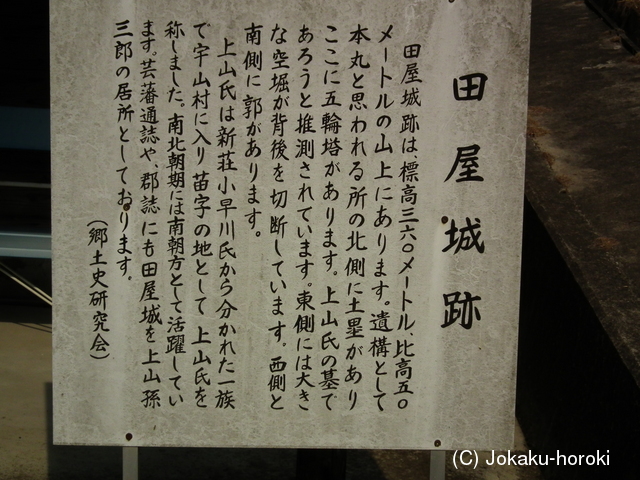 田屋城跡
田屋城跡は、標高三六〇メートル、比高五〇
メートルの山上にあります。遺構として
本丸と思われる所の北側に土塁があり
ここに五輪塔があります。上山氏の墓で
あろうと推測されています。東側には大き
な空堀が背後を切断しています。西側と
南側に郭があります。
上山氏は新荘小早川氏から分かれた一族
で宇山村に入り苗字の地として上山氏を
称しました。南北朝期には南朝方として活躍してい
ます。芸藩通誌や、郡誌にも田屋城を上山孫
三郎の居所としております。
（郷土史研究会）
(C) Jokaku-horoki